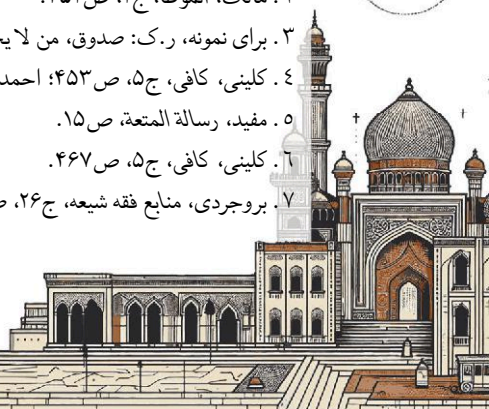 ٣. برای نمونه، ر.ک: صدوق، من لا
٤. کلینی، کافی، ج۵، ص۴۵۳؛ احمد
۵. مفید، رسالة المتعة، ص۱۵.
۶. کلینی، کافی، ج۵، ص۴۶۷.
۷. بروجردی، منابع فقه شیعه، ج۲۶،